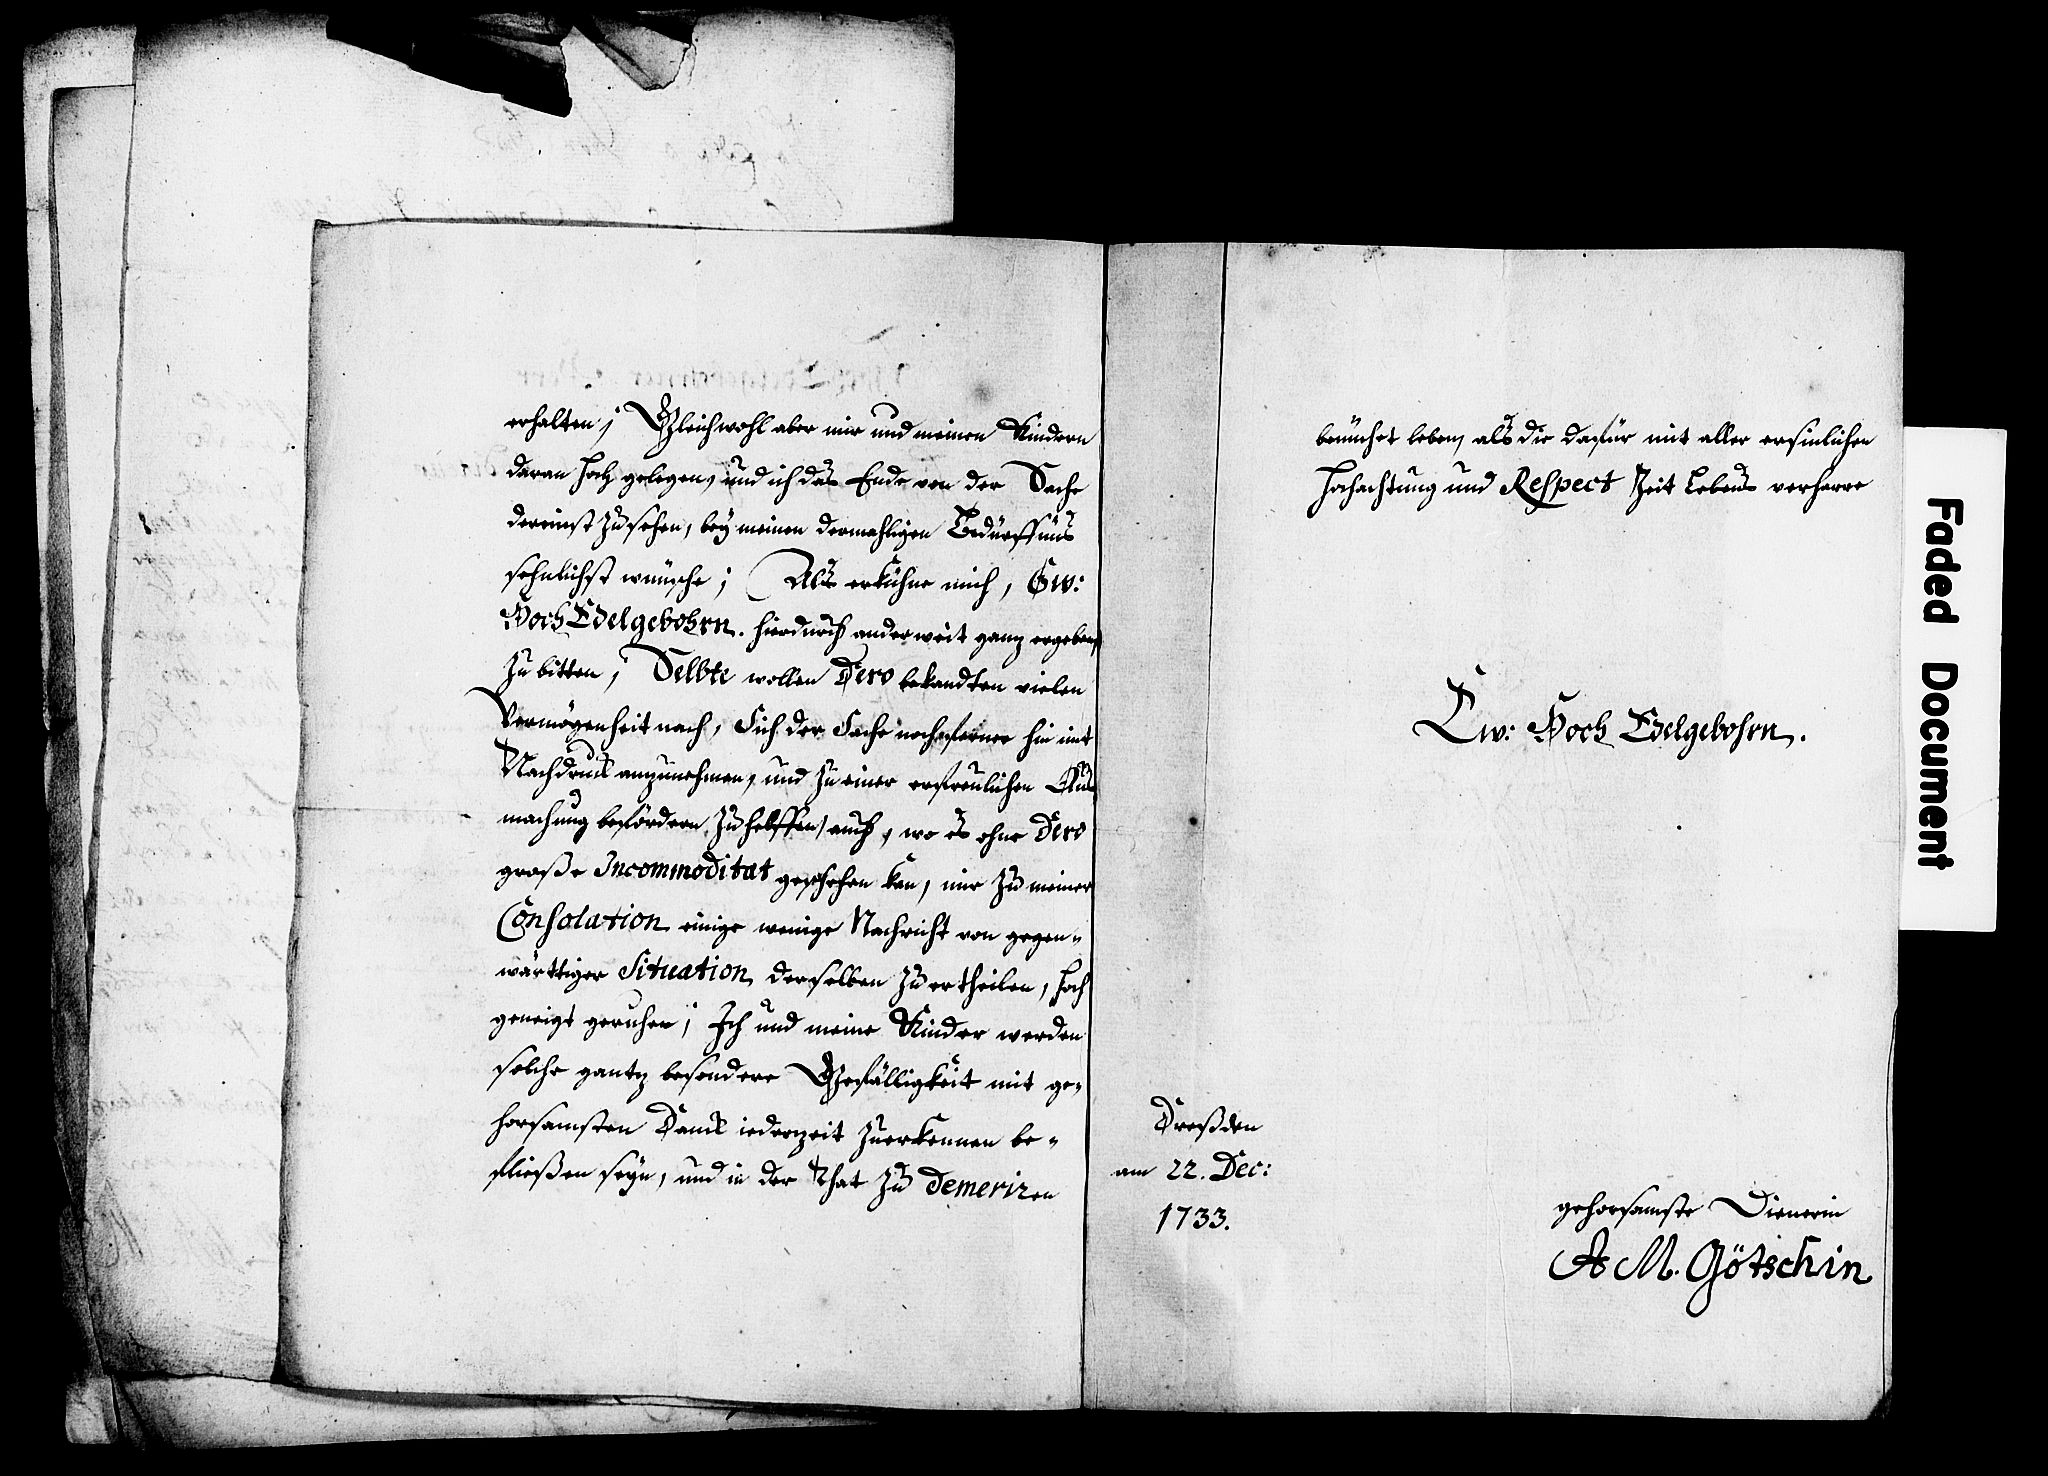 erhalten; Gleichwohl aber mir und meinen Kindern
daran hoch gelegen, und ich das Ende von der Sache
dereinst zu sehen, bey meinen dermahligen Bedürffnüs
sehnlichst wünsche; Als erkühne mich, Ew:
HochEdelgebohrn. hierdurch anderweit ganz ergebens
zu bitten; Selbte wollen Dero bekandten vielen
Vermögenheit nach, Sich der Sache noch ferner hin mit
Nachdruck anzunehmen, und zu einer erfreulichen Aus
machung befördern zu helffen, auch, wo es ohne Dero
große Incommoditat geschehen kan, mir zu meiner
Consolation einige wenige Nachricht von gegen-
wärttiger Situation derselben zu ertheilen, hoch
geneigt geruhen; Ich und meine Kinder werden
solche gantz besondere Gefälligkeit mit ge-
horsamsten Danck iederzeit zuerkennen be-
fließen seyn, und in der That zu demeriren
bemühet leben, als die dafür mit aller ersinlichen
Hochachtung und Respect Zeit Lebens verharre
Ew: Hoch Edelgebohrn.
Dreßden
am 22. Dec:
1733.
gehorsamste Dienerin
A M. Götschin
Faded Document